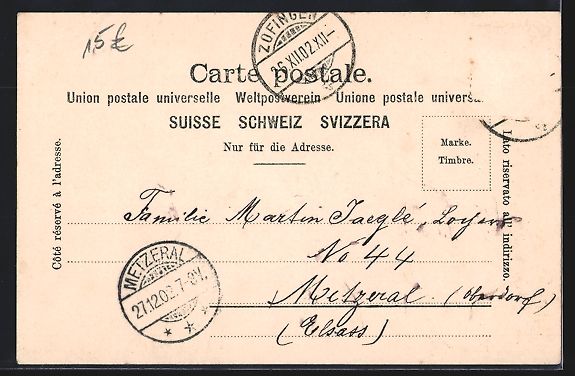 15£
ZOFINGEN
26.XII.02.XII-
Carte postale.
Union postale universelle Weltpostverein Unione postale
SUISSE SCHWEIZ SVIZZERA
Nur für die Adresse.
Marke.
Timbre.
Côté réservé à l'adresse.
Lato riservato all' indirizzo.
Familie Martin Jaeglé,
No 44
Metzeral (Oberdorf)
(Elsass)
METZERAL
27.12.02.7-8V.